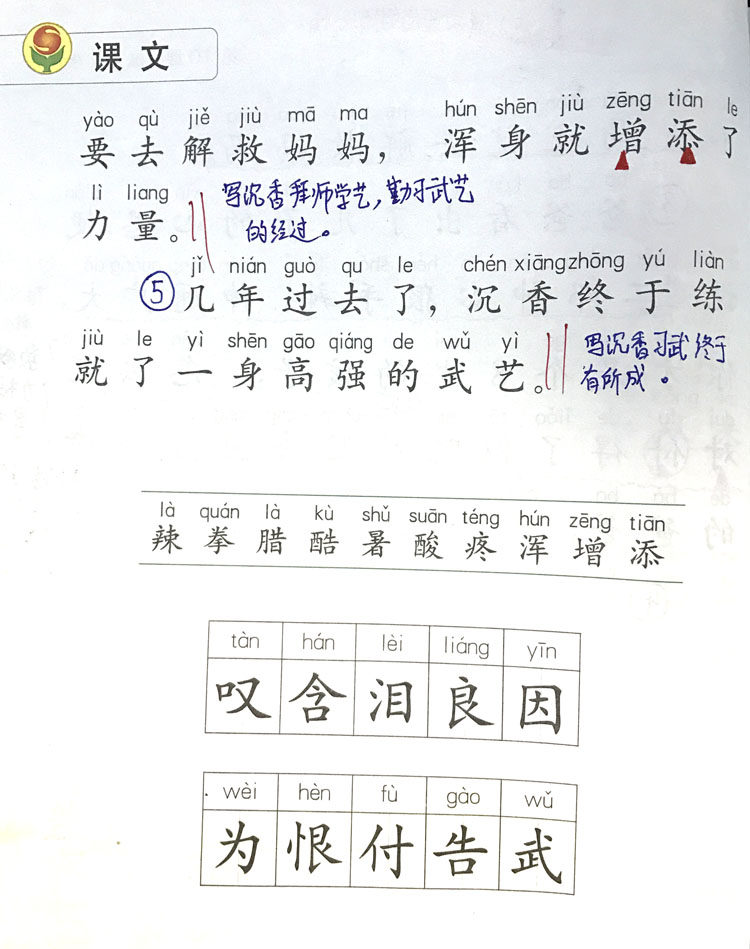 课文
yào qù jiě jiù mā ma hún shēn jiù zēng tiān le
要去解救妈妈，浑身就增添了
lì liang
力量。
写沉香拜师学艺，勤习武艺
的经过。
jǐ nián guò qu le chén xiāng zhōng yú liàn
⑤几年过去了，沉香终于练
jiù le yì shēn gāo qiáng de wǔ yì
就了一身高强的武艺。
写沉香习武终于
有所成。
là quán là kù shǔ suān téng hún zēng tiān
辣 拳 腊 酷 暑 酸 疼 浑 增 添
tàn hán lèi liáng yīn
叹 含 泪 良 因
wèi hèn fù gào wǔ
为 恨 付 告 武